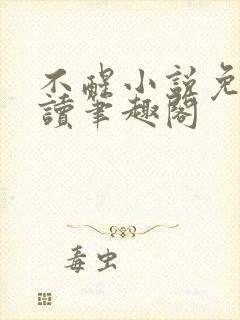 不醒小說免
讀筆趣閣
毒虫